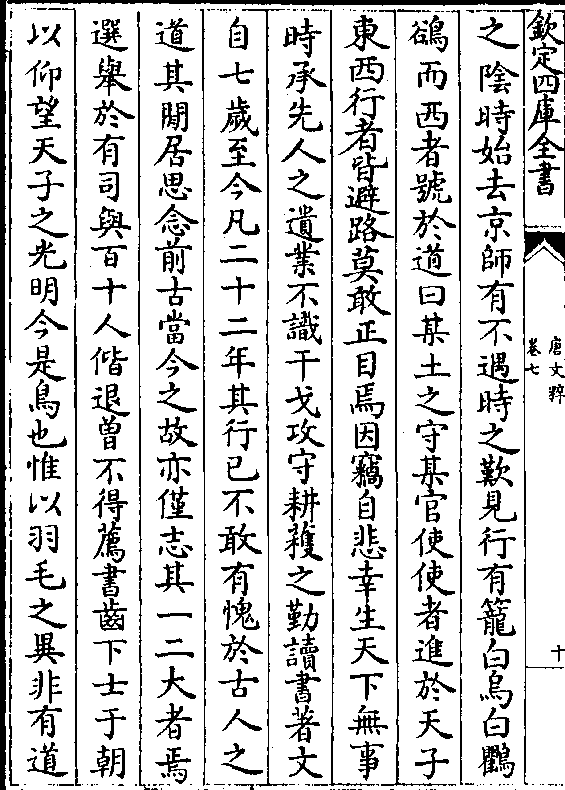 欽定四庫全書
唐文粹
卷七
十
之隂時始去京師有不遇時之歎見行有籠白烏白鸜
鵒而西者號於道曰某土之守某官使使者進於天子
東西行者皆避路莫敢正目焉因竊自悲幸生天下無事
時承先人之遺業不識干戈攻守耕穫之勤讀書著文
自七歲至今凡二十二年其行已不敢有愧於古人之
道其閒居思念前古當今之故亦僅志其一二大者焉
選舉於有司與百十人偕退曽不得薦書齒下士于朝
以仰望天子之光明今是鳥也惟以羽毛之異非有道